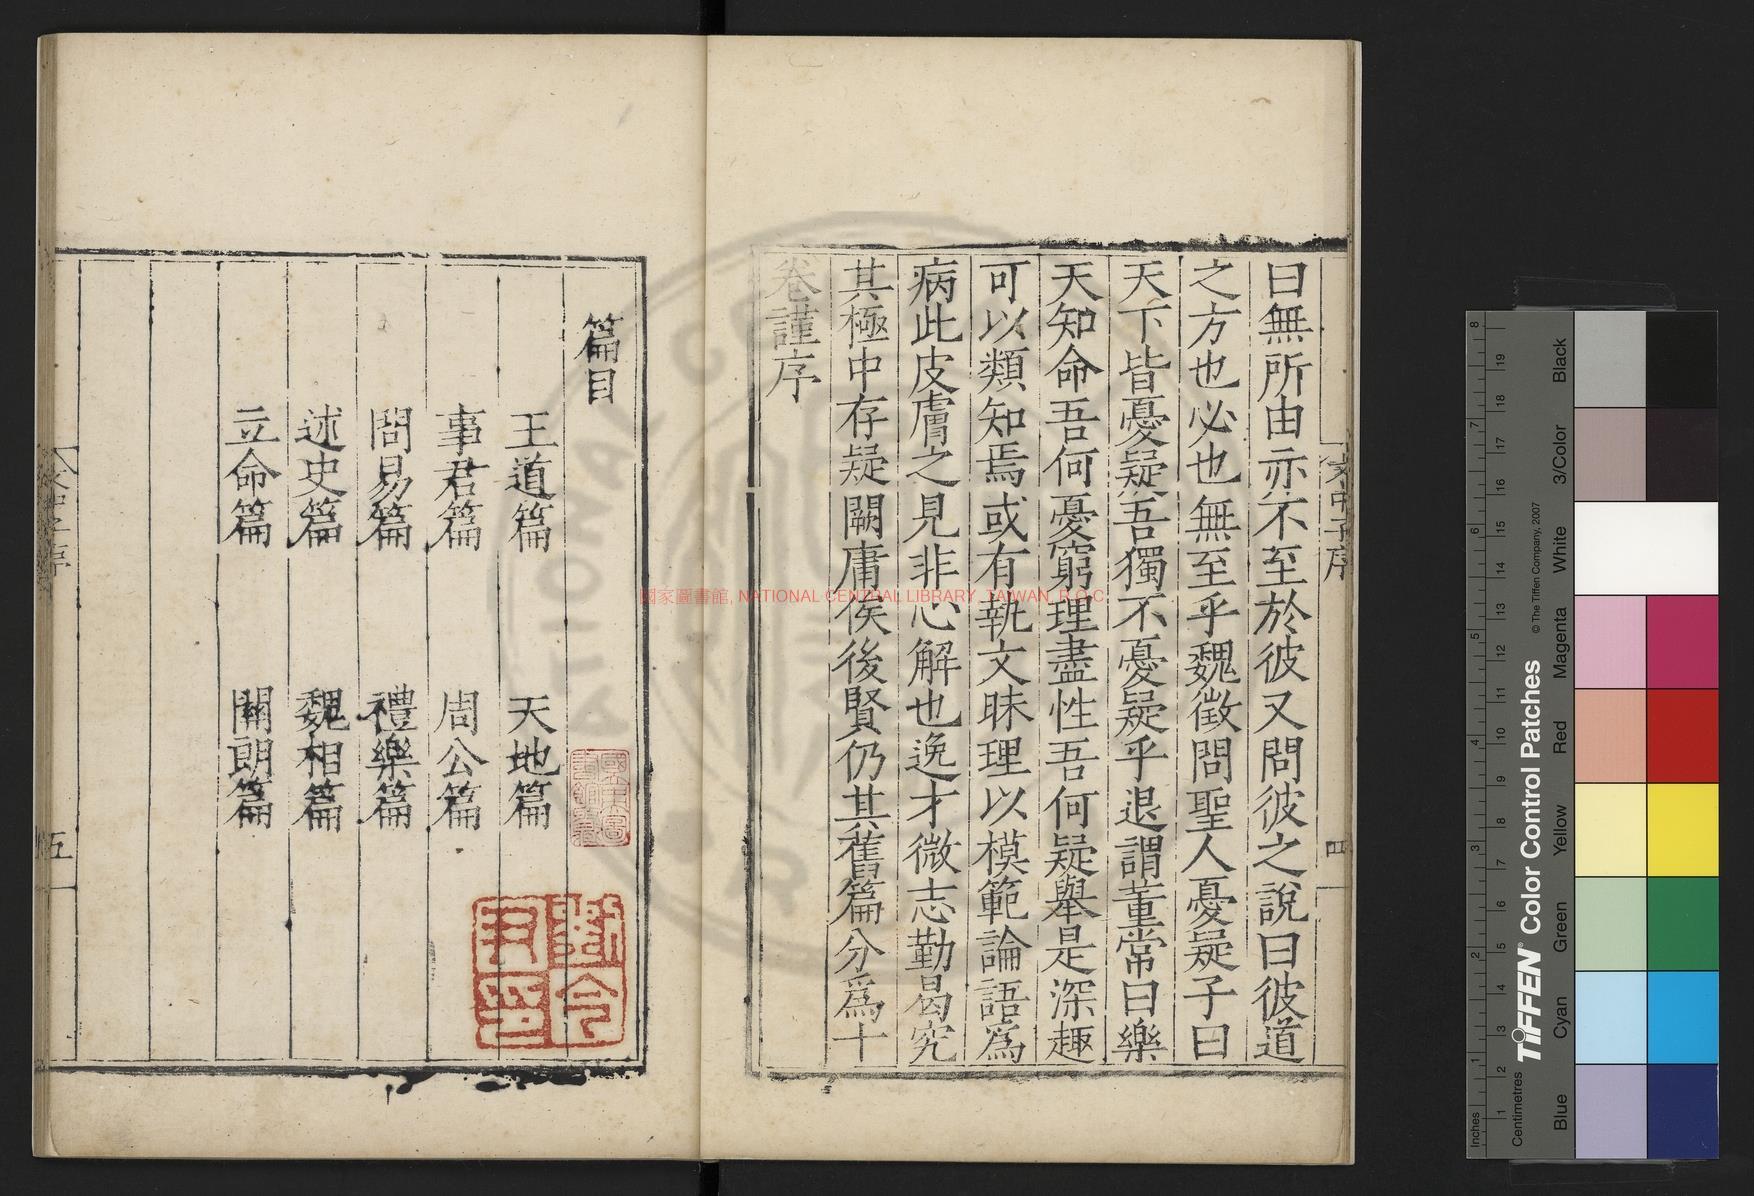 曰無所由亦不至於彼又問彼之說曰彼道
之方也必也無至乎魏徵問聖人憂疑子曰
天下皆憂疑吾獨不憂疑乎退謂董常曰樂
天知命吾何憂窮理盡性吾何疑舉是深趣
可以類知焉或有執文昧理以模範論語為
病此皮膚之見非心解也逸才微志勤曷究
其極中存疑闕庸俟後賢仍其舊篇分為十
卷謹序
文中子序
四
篇目
王道篇 天地篇
事君篇 周公篇
問易篇 禮樂篇
述史篇 魏相篇
立命篇 關朗篇
五
國家圖書館, NATIONAL CENTRAL LIBRARY, TAIWAN, R.O.C
TIFFEN® Color Control Patches
© The Tiffen Company, 2007
Inches
Centimetres
Blue
Cyan
Green
Yellow
Red
Magenta
White
3/Color
Black